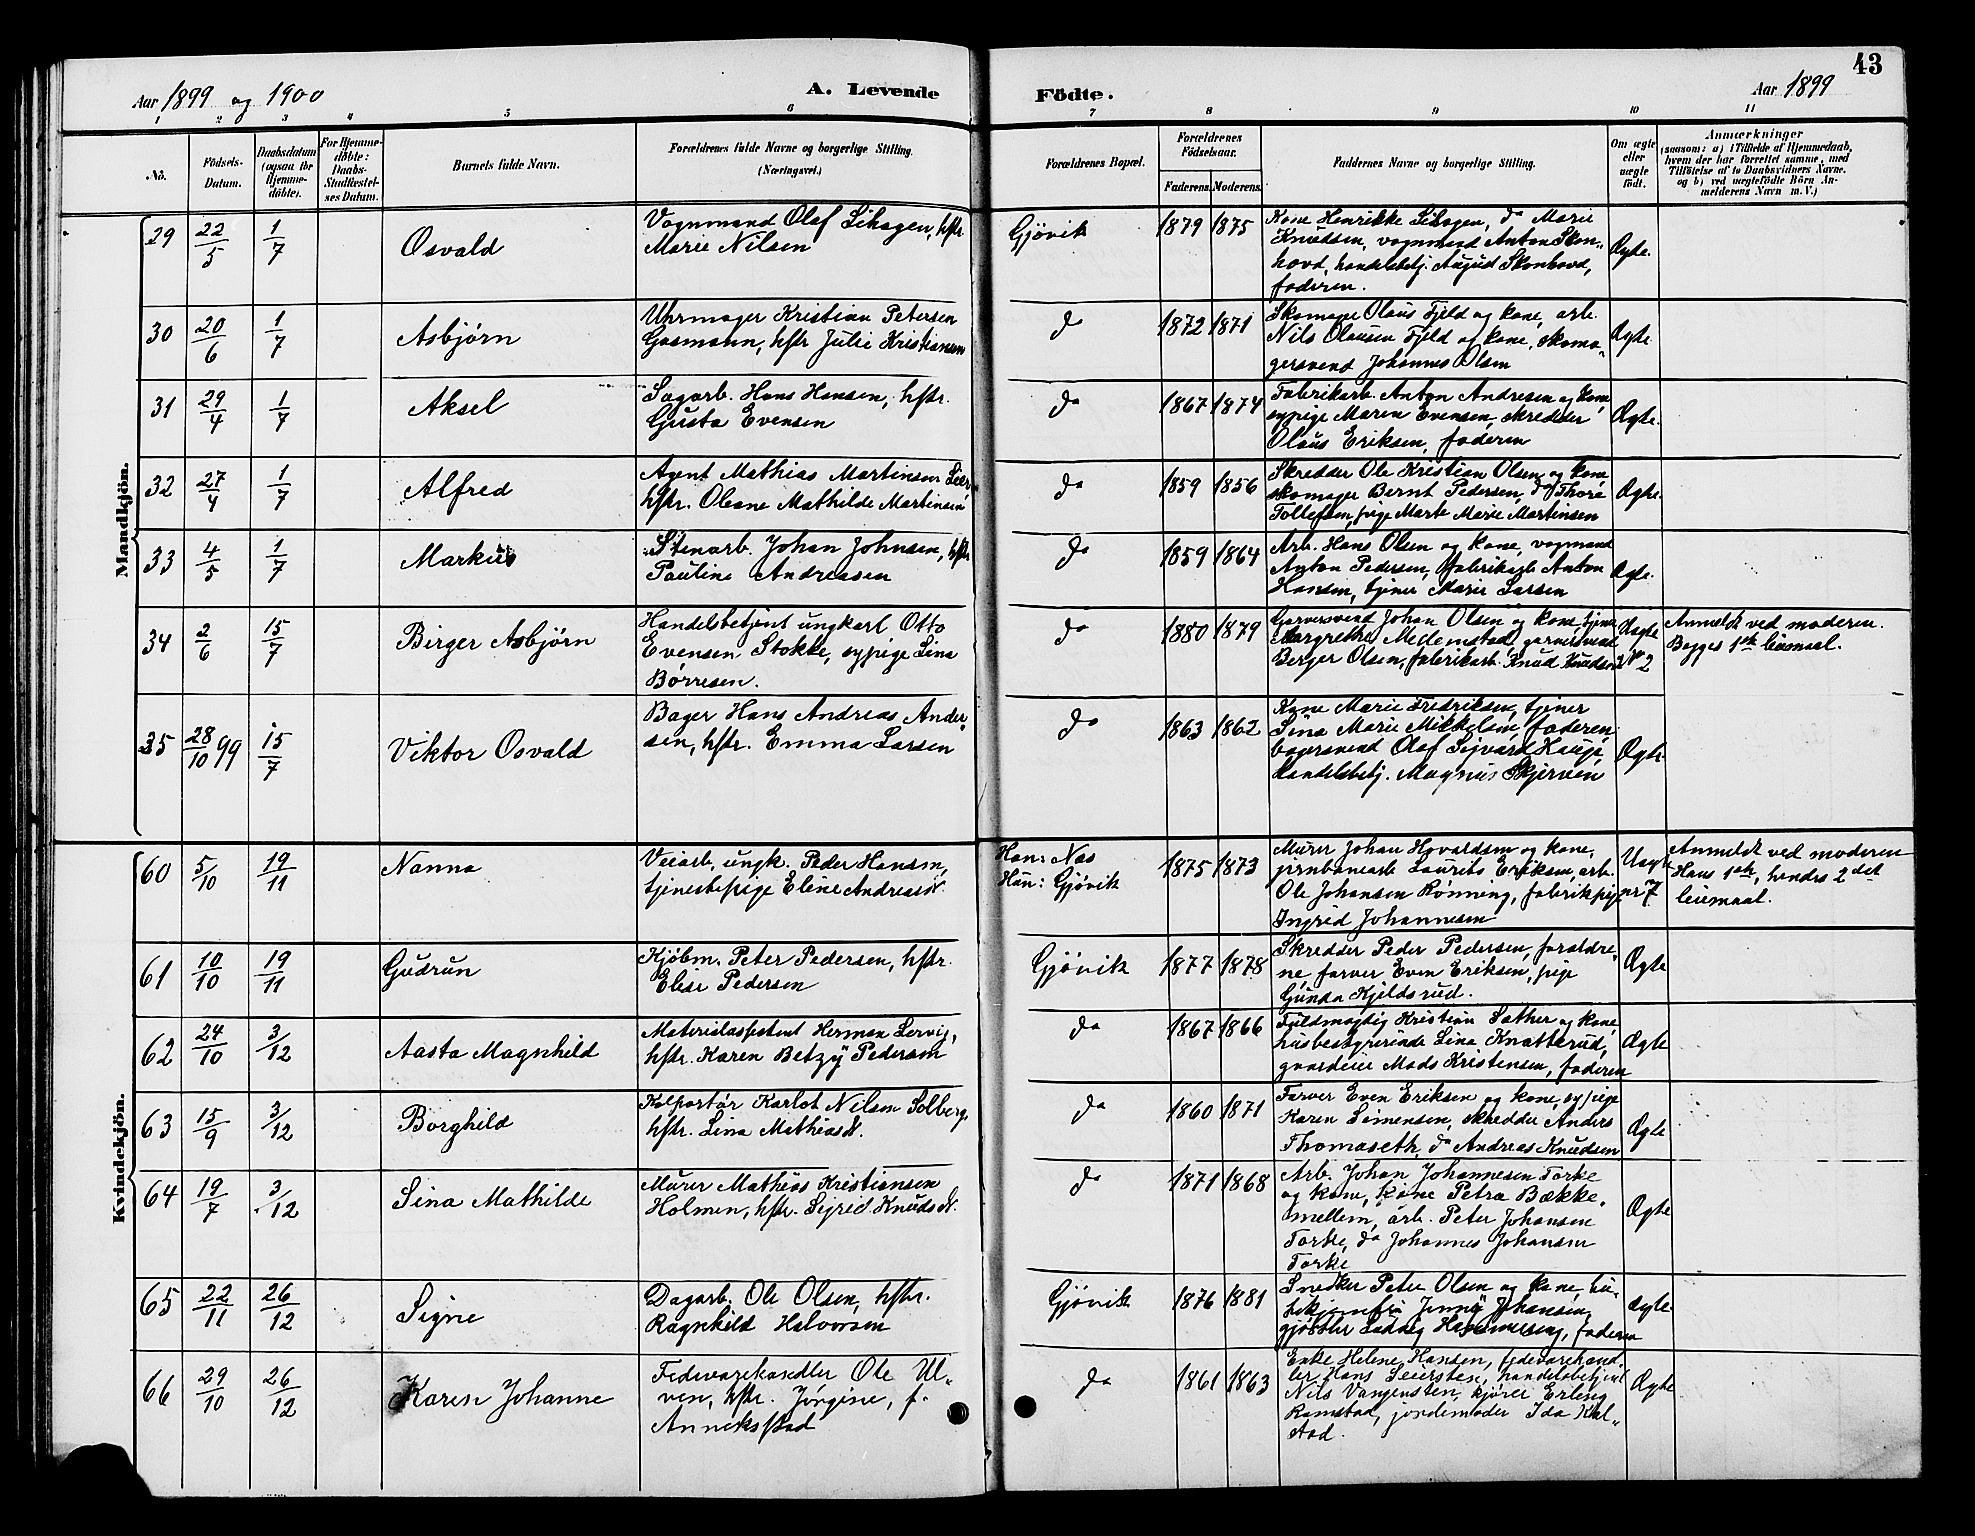 Aar 1899 og 1900
A. Levende
Födte.
Aar 1899
43
1 2 3 4 5 6 7 8 9 10 11
No.
Födsels-Datum.
Daabsdatum (ogsaa for Hjemme-döbte).
For Hjemme-döbte: Daabs-Stadfæstel-ses Datum.
Barnets fulde Navn.
Forældrenes fulde Navne og borgerlige Stilling.
(Næringsvei.)
Forældrenes Bopæl.
Forældrenes Födselsaar.
Faderens. Moderens.
Faddernes Navne og borgerlige Stilling.
Om ægte eller uægte födt.
Anmærkninger
(saasom: a) i Tilfælde af Hjemmedaab,
hvem der har forrettet samme, med
Tilföielse af to Daabsvidners Navne.
og b) ved uægtefödte Börn An-
melderens Navn m. V.)
Mandkjön.
29 22/5 1/7 Osvald
Vognmand Olaf Lihagen, hstr.
Marie Nilsen
Gjövik 1879 1875
Kone Henrikke Lihagen, do Marie
Knudsen, vognmand Anton Skon-
hovd, handelsbetj. August Skonhovd,
faderen.
Ægte.
30 20/6 1/7 Asbjørn
Uhrmager Kristian Petersen
Gosmann, hstr Julie Kristiansen
do 1872 1871
Skomager Olaus Fjeld og kone, arb.
Nils Olausen Fjeld og kone, skoma-
gersvend Johannes Olsen
Ægte.
31 29/4 1/7 Aksel
Sagarb. Hans Hansen, hstr.
Gusta Evensen
do 1867 1874
Fabrikarb. Anton Andresen og kone,
sypige Maren Evensen, skredder
Olaus Eriksen, faderen
Ægte.
32 27/4 1/7 Alfred
Agent Mathias Martinsen Lier,
hstr. Oleane Mathilde Martinsen
do 1859 1856
Skredder Ole Kristian Olsen og kone,
skomager Bernt Pedersen, do Thore
Tollefsen, pige Marte Marie Martinsen
Ægte.
33 4/5 1/7 Markus
Stenarb. Johan Johnsen, hstr
Pauline Andreasen
do 1859 1864
Arb. Hans Olsen og kone, vogmand
Anton Pedersen, fabrikarb Anton
Hansen, tjener Marie Larsen
Ægte.
34 2/6 15/7 Birger Asbjørn
Handelsbetjent ungkarl Otto
Evensen Stokke, sypige Lina
Børresen.
do 1880 1879
Garversvend Johan Olsen og kone, tjener
Margrethe Medemstad, garversvend
Berger Olsen, fabrikarb. Knud Knudsen
Uægte
No 2
Anmeldt ved moderen.
Begges 1ste leiemaal.
35 28/10 99 15/7 Viktor Osvald
Bager Hans Andreas Ander-
sen, hstr. Emma Larsen
do 1863 1862
Kone Marie Fredriksen, tjener
Lina Marie Mikkelsen, faderen
bagersvend Olaf Sigvard Hauge,
handelsbetj. Magnus Skjerven
Ægte.
Kvindekjön.
60 5/10 19/11 Nanna
Veiarb. ungk. Peder Hansen,
tjenestepige Eline Andreasd.
Han: Næs
Hun: Gjövik
1875 1873
Murer Johan Hovardsen og kone,
jernbanearb Laurits Eriksen, arb.
Ole Johansen Rønning, fabrikpige
Ingrid Johannesen
Uægte
nr 7
Anmeldt ved moderen
Hans 1ste, hendes 2det
leiemaal.
61 10/10 19/11 Gudrun
Kjøbm. Peter Pedersen, hstr.
Elise Pedersen
Gjövik 1877 1878
Skredder Peder Pedersen, forældre-
ne, farver Even Eriksen, pige
Gunda Kjeldsrud.
Ægte
62 24/10 3/12 Aasta Magnhild
Materialassistent Herman Lervig,
hstr. Karen Betzy Pedersen
do 1867 1866
Fuldmægtig Kristian Sæther og kone,
husbestyrerinde Lina Knatterud,
gaardeier Mads Kristensen, faderen
Ægte
63 15/9 3/12 Borghild
Kolportør Karlot Nilsen Solberg,
hstr. Lina Mathiasd.
do 1860 1871
Farver Even Eriksen og kone, sypige
Karen Simensen, skredder Anders
Thomaseth, do Andreas Knudsen
Ægte
64 19/7 3/12 Lina Mathilde
Murer Mathias Kristiansen
Holmen, hstr. Sigrid Knudsd.
do 1871 1868
Arb. Johan Johannesen Torke
og kone, kone Petra Bække-
mellem, arb. Peter Johansen
Torke, do Johannes Johansen
Torke
Ægte
65 22/11 26/12 Signe
Dagarb. Ole Olsen, hstr.
Ragnhild Halvorsen
Gjövik 1876 1881
Snedker Peter Olsen og kone, bu-
tikjomfru Jenny Johansen,
gjørtler Ludvig Hemmesing, faderen
Ægte
66 29/10 26/12 Karen Johanne
Fedevarehandler Ole Ul-
ven, hstr. Jørgine, f.
Annekstad
do 1861 1863
Enke Helene Hansen, fedevarehand-
ler Hans Seiersten, handelsbetjent
Nils Vangensten, kjører Erling
Ramstad, jordemoder Ida Kol-
stad.
Ægte